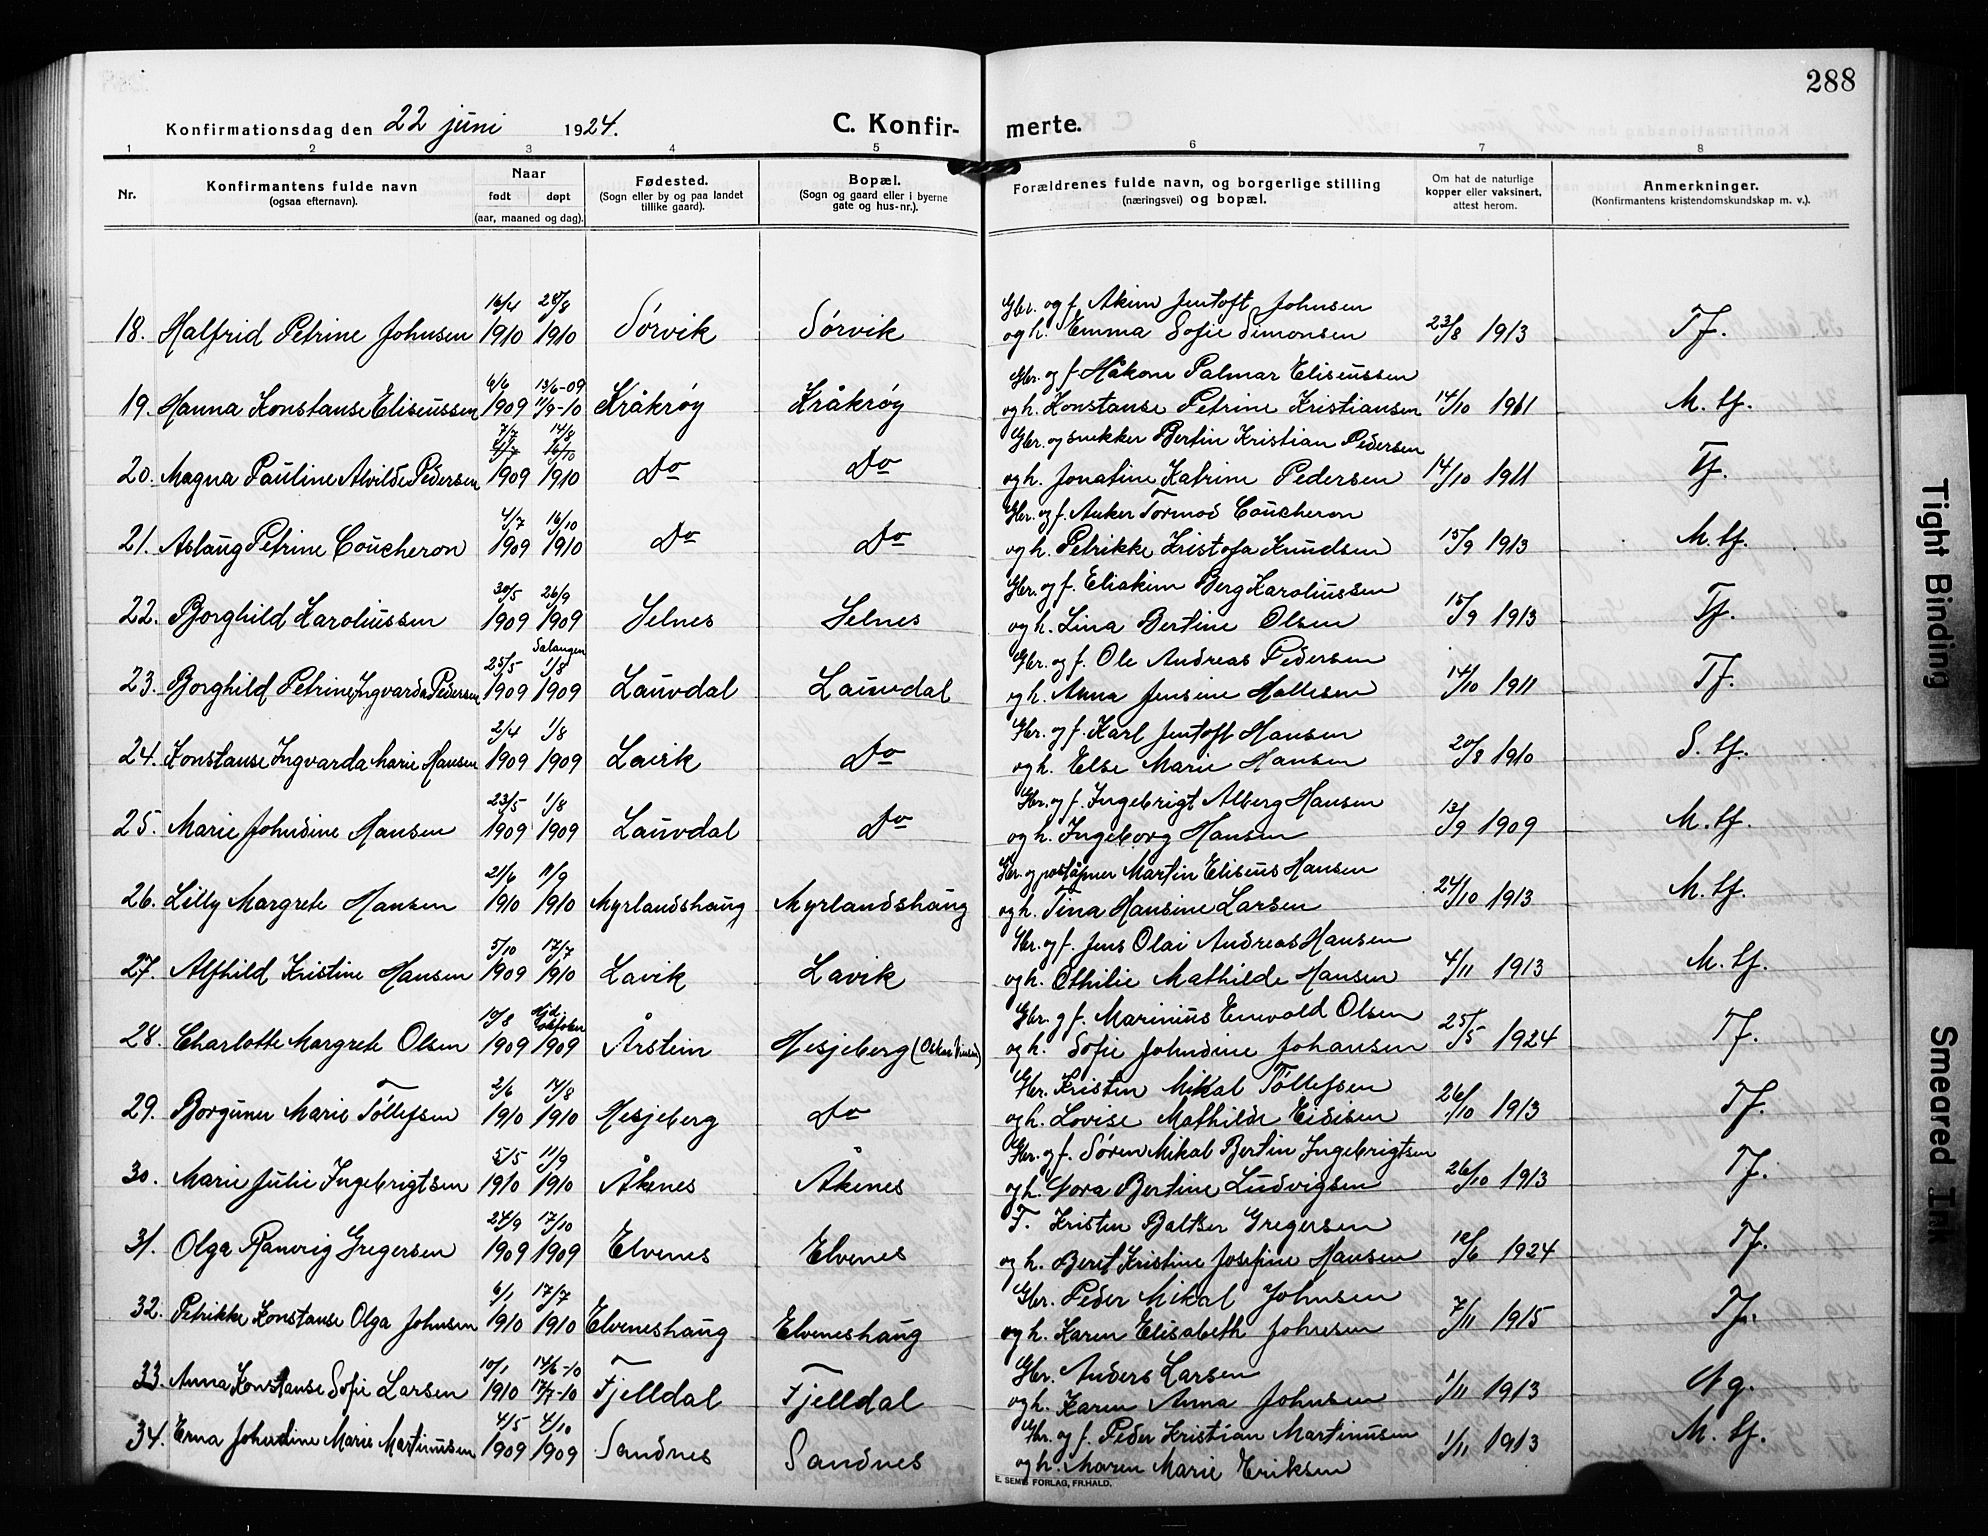 288
Konfirmationsdag den 22 juni 1924. C. Konfir- merte.
1 2 3 4 5 6 7 8
Nr. Konfirmantens fulde navn (ogsaa efternavn). Naar født døpt (aar, maaned og dag). Fødested. (Sogn eller by og paa landet tillike gaard). Bopæl. (Sogn og gaard eller i byerne gate og hus-nr.). Forældrenes fulde navn, og borgerlige stilling (næringsvei) og bopæl. Om hat de naturlige kopper eller vaksinert, attest herom. Anmerkninger. (Konfirmantens kristendomskundskap m. v.).
16/4 28/8 Gbr. og f. Akim Jentoft Johnsen
18. Halfrid Petrine Johnsen 1910 1910 Sørvik Sørvik og h. Emma Sofie Simonsen 23/8 1913 Tf.
6/6 13/6-09 Gbr. og f. Håkon Palmar Eliseussen
19. Hanna Konstanse Eliseussen 1909 11/9-10 Kråkrøy Kråkrøy og h. Konstanse Petrine Kristiansen 14/10 1911 M. tf.
7/7 14/8 Gbr. og snekker Bertin Kristian Pedersen
4/7 16/10
20. Magna Pauline Alvilde Pedersen 1909 1910 Do Do og h. Jonatine Katrine Pedersen 14/10 1911 Tf.
4/7 16/10 Gbr. og f. Anker Tormod Coucheron
21. Aslaug Petrine Coucheron 1909 1910 Do Do og h. Petrikke Kristofa Knudsen 15/9 1913 M. tf.
30/5 26/9 Gbr. og f. Eliakim Berg Karoliussen
22. Borghild Karoliussen 1909 1909 Selnes Selnes og h. Lina Bertine Olsen 15/9 1913 Tf.
Salangen
25/5 1/8 Gbr. og f. Ole Andreas Pedersen
23. Borghild Petrine Ingvarda Pedersen 1909 1909 Lauvdal Lauvdal og h. Anna Jensine Mathisen 14/10 1911 Tf.
2/4 1/8 Gbr. og f. Karl Jentoft Hansen
24. Konstanse Ingvarda Marie Hansen 1909 1909 Lavik Do og h. Else Marie Hansen 20/8 1910 S. tf.
23/5 1/8 Gbr. og f. Ingebrigt Alberg Hansen
25. Marie Johndine Hansen 1909 1909 Lauvdal Do og h. Ingeborg Hansen 13/9 1909 M. tf.
21/6 11/9 Gbr. og poståpner Martin Eliseus Hansen
26. Lilly Margrete Hansen 1910 1910 Myrlandshaug Myrlandshaug og h. Tina Hansine Larsen 24/10 1913 M. tf.
5/10 17/7 Gbr. og f. Jens Olai Andreas Hansen
27. Alfhild Kristine Hansen 1909 1910 Lavik Lavik og h. Othilie Mathilde Hansen 4/11 1913 M. tf.
10/8 Gbr. og f. Marinius Enevold Olsen
28. Charlotte Margrete Olsen 1909 1909 Årstein Hesjeberg og h. Sofie Johndine Johansen 25/5 1924 Tf.
2/6 14/8 Gbr. Kristen Mikal Tøllefsen
29. Borguner Marie Tøllefsen 1910 1910 Hesjeberg Do og h. Lovise Mathilde Eidisen 26/10 1913 Tf.
5/5 11/9 Gbr. og f. Søren Mikal Bertin Ingebrigtsen
30. Marie Julie Ingebrigtsen 1910 1910 Åkenes Åkenes og h. Nora Bertine Ludvigsen 26/10 1913 Tf.
24/9 17/10 F. Kristen Baltser Gregersen
31. Olga Ranveig Gregersen 1909 1909 Elvenes Elvenes og h. Beret Kristine Josefine Hansen 12/6 1924 Tf.
6/1 17/7 Gbr. Peder Mikal Johnsen
32. Petrikke Konstanse Olga Johnsen 1910 1910 Elveneshaug Elveneshaug og h. Karen Elisabeth Johnsen 7/11 1915 Tf.
10/1 14/6-10 Gbr. Anders Larsen
33. Anna Konstanse Sofie Larsen 1910 17/7-10 Fjelldal Fjelldal og h. Karen Anna Johnsen 1/11 1913 Ng.
4/5 4/10 Gbr. og f. Peder Kristian Martinusen
34. Erna Johndine Marie Martinusen 1909 1909 Sandnes Sandnes og h. Maren Marie Eriksen 1/11 1913 M. tf.
E. SEMS FORLAG, FR.HALD.
Tight Binding
Smeared Ink